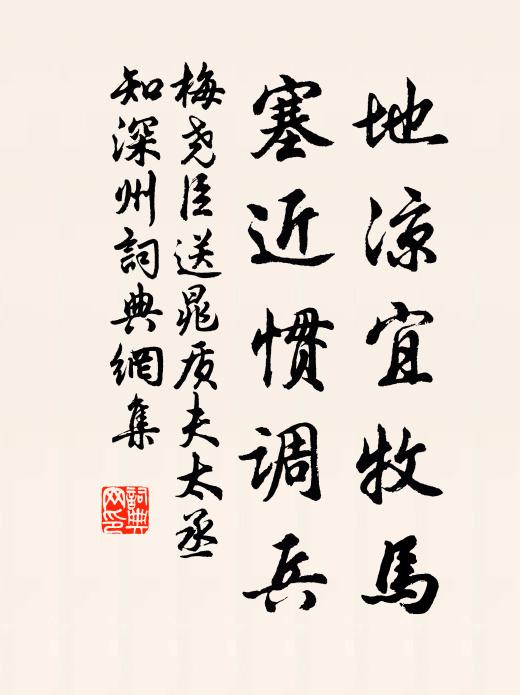 地凉宜牧馬
塞近惯调兵
梅尧臣送晁质夫太丞
知深州詞典網集
詞典
网印